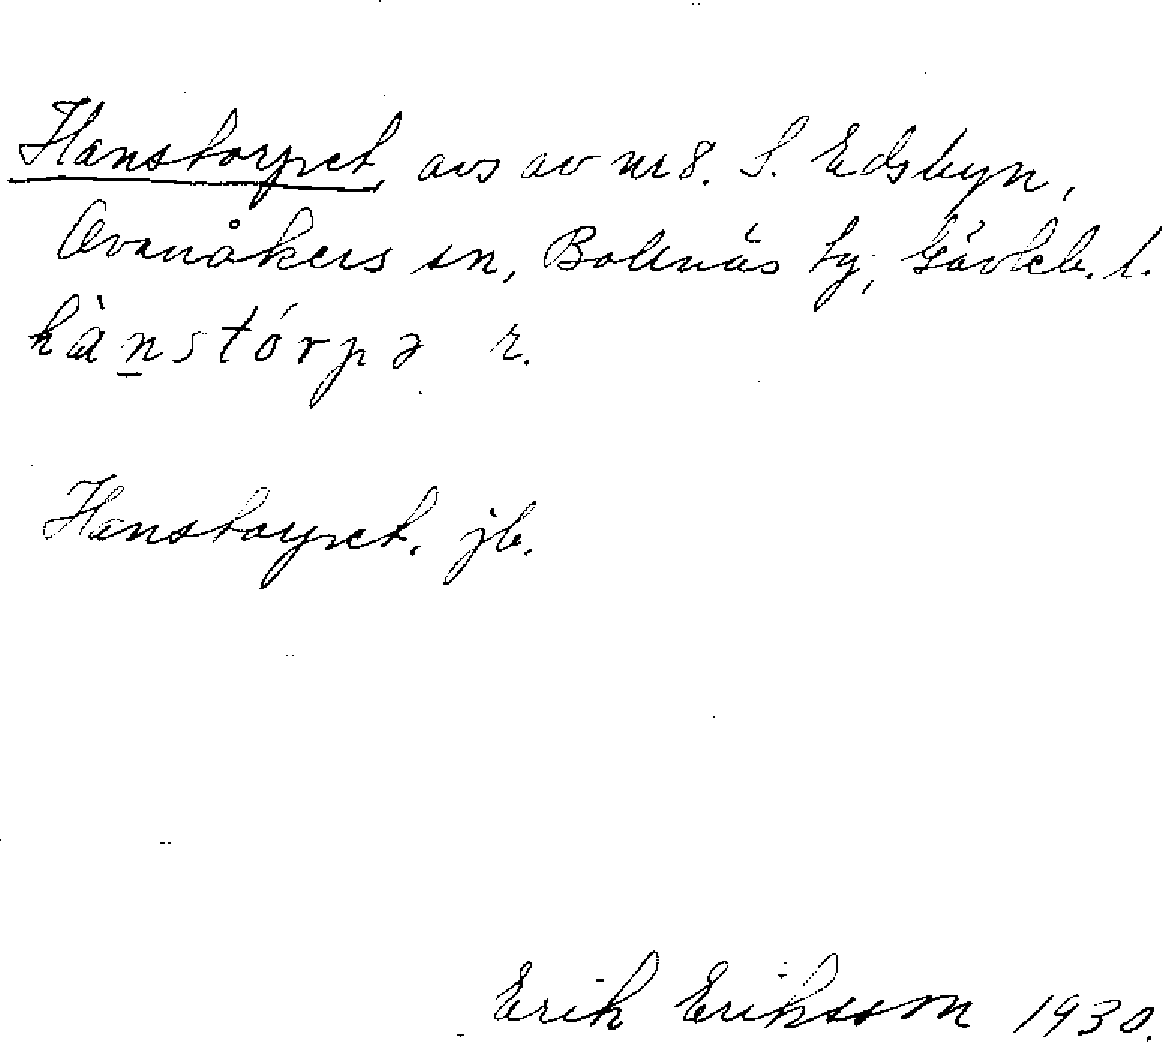 Hanstorpet, avs av nr 8. S. Edsbyn,
Ovanåkers sn, Bollnäs tg, Gävleb. l.
hànstórpə r.
Hanstorpet. jb.
Erik Eriksson 1930.